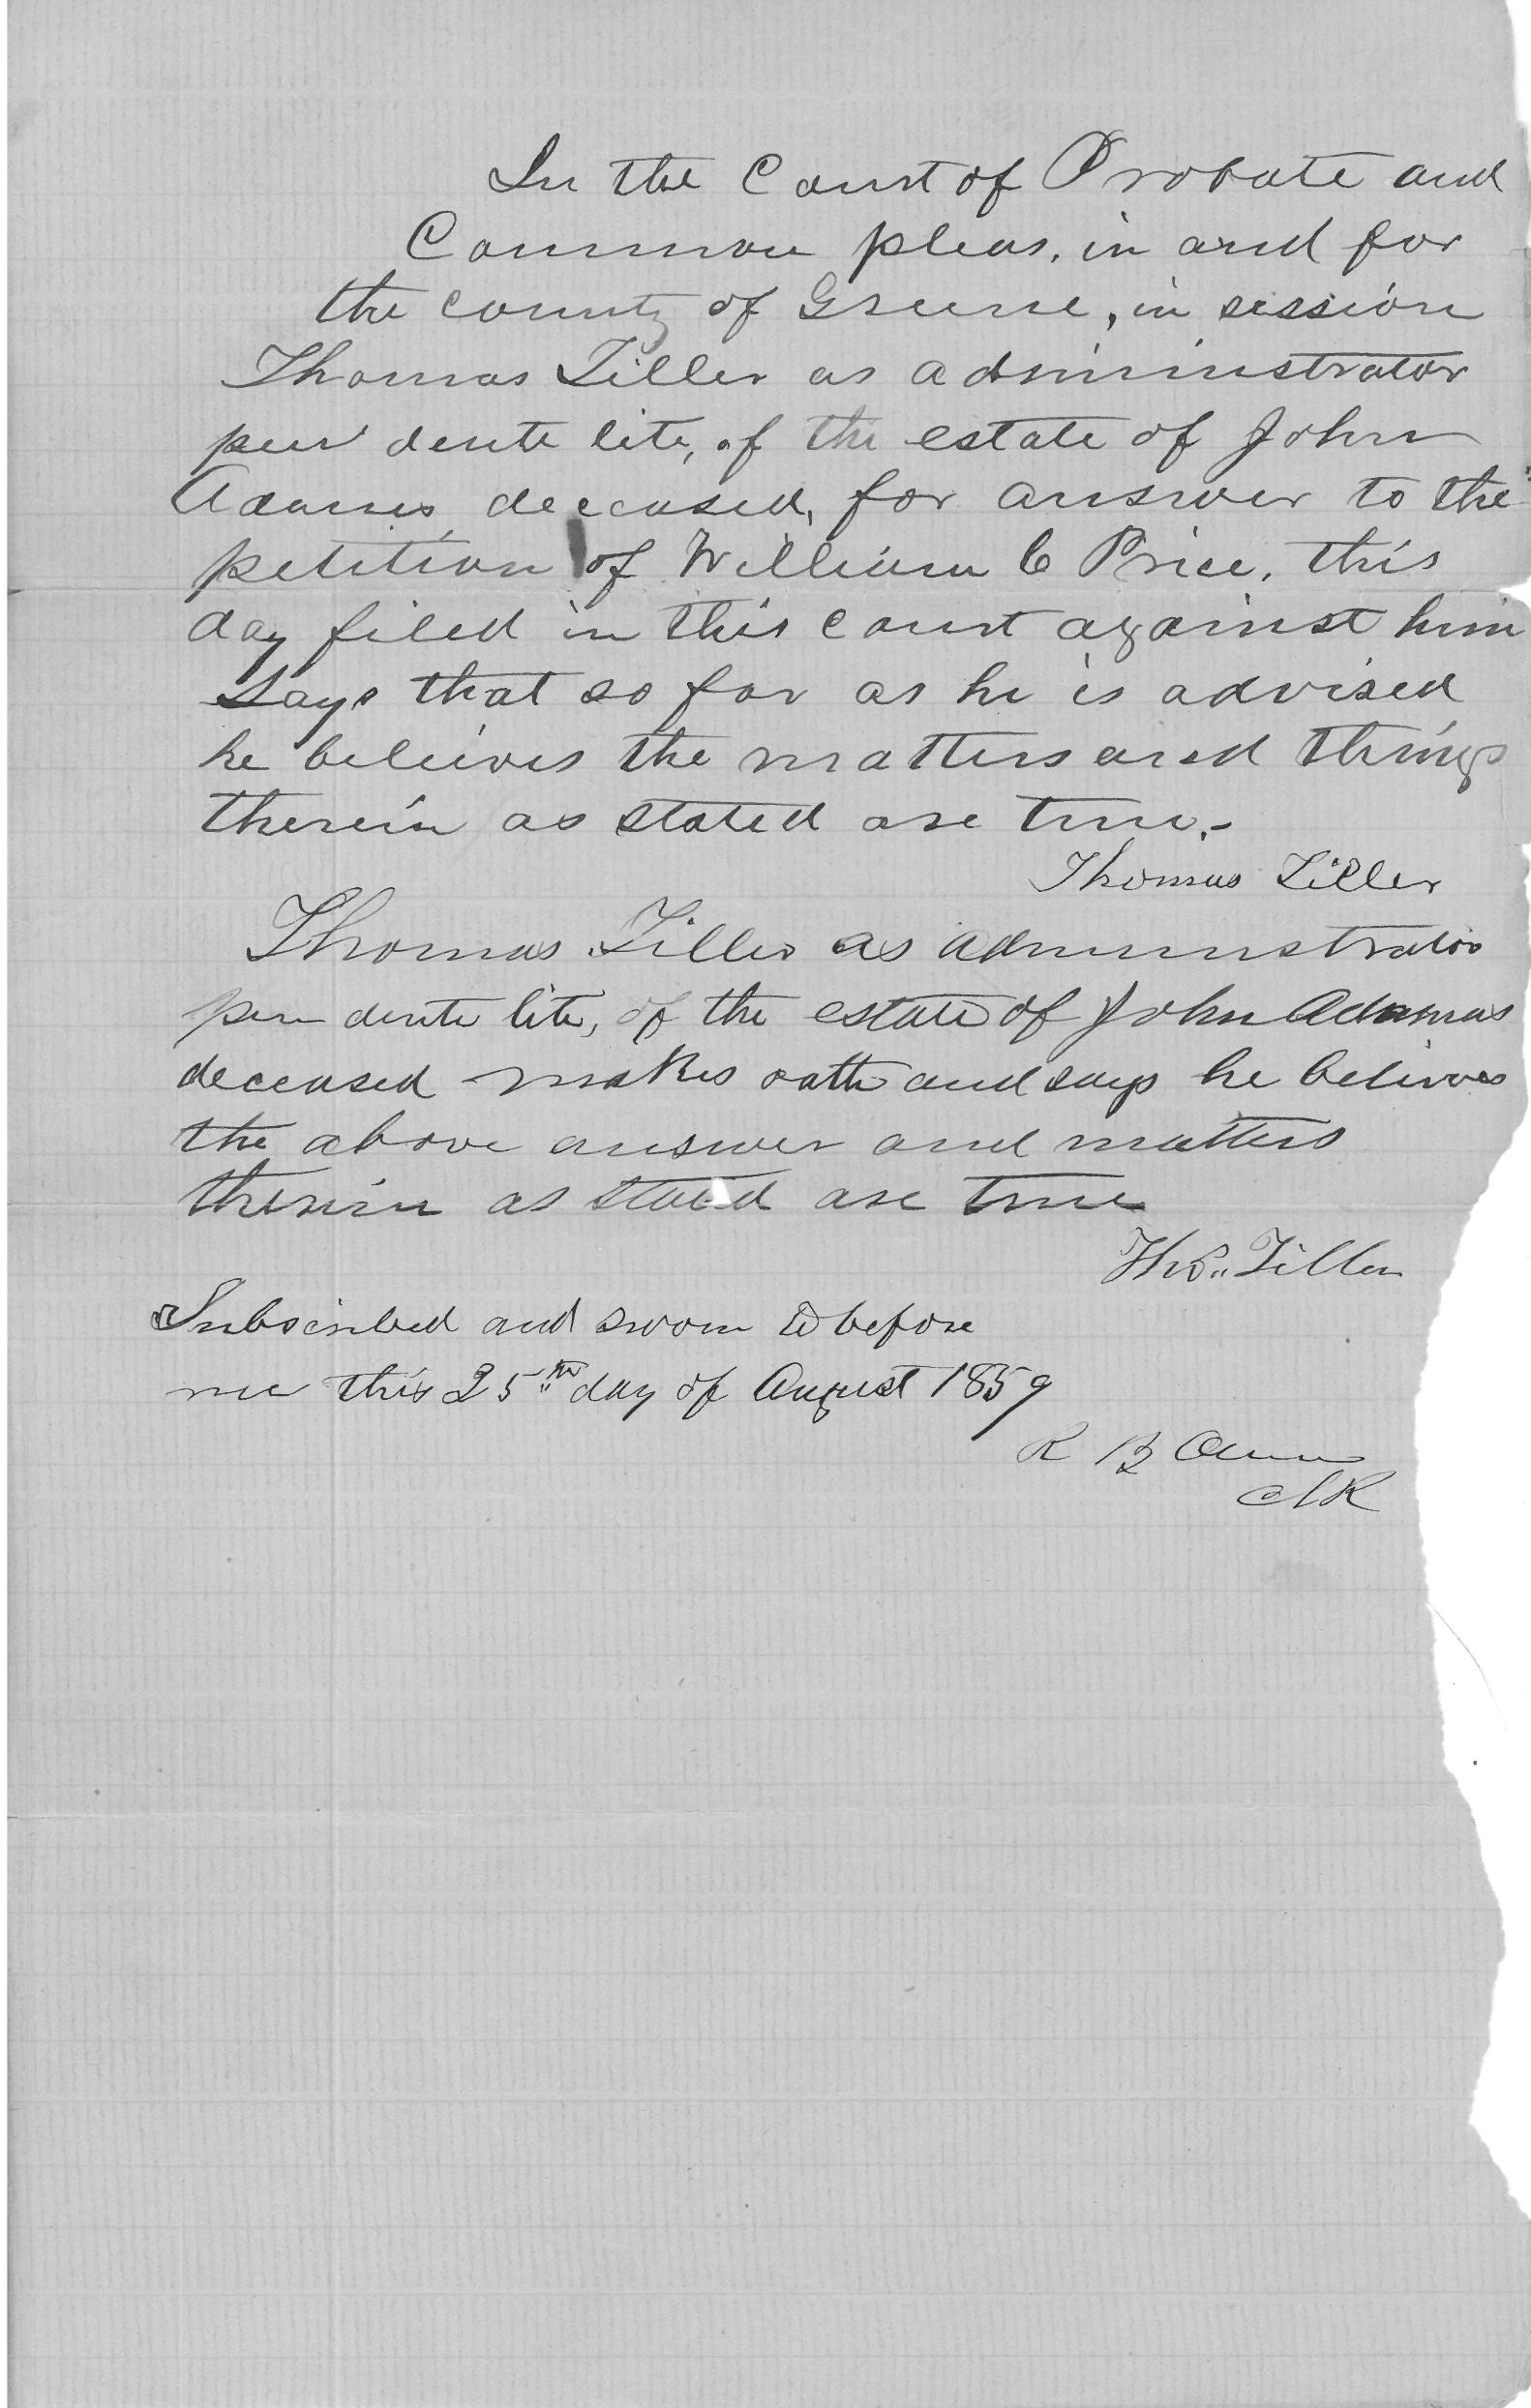 In the Court of Probate and
Common pleas, in and for
the county of Greene, in session
Thomas Tiller as administrator
pen dente lite, of the estate of John
Adams deceased, for answer to the
petition of William C Price, this
day filed in this court against him
says that so far as he is advised
he believes the matters and things
therein as stated are true.-
Thomas Tiller
Thomas Tiller as administrator
pen dente lite, of the estate of John Adamas
deceased makes oath and says he believes
the above answer and matters
therein as stated are true
Thos. Tiller
Subscribed and sworn to before
me this 25th day of August 1859
R B
Clk